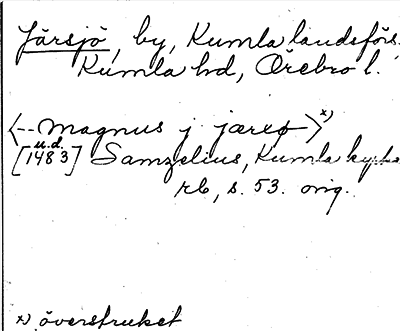 Järsjö, by, Kumla landsförs.
Kumla hd, Örebro l.
<-- magnus j jæreø>x)
u.d.
[1483] Samzelius, Kumla kyrkas
rb, s. 53. orig.
x) överstruket